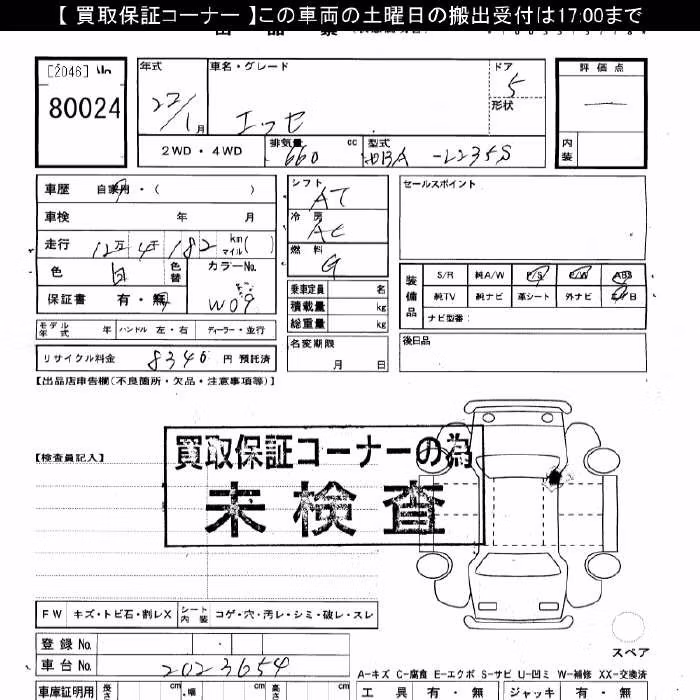 【 買取保証コーナー 】この車両の土曜日の搬出受付は17:00まで
[2046]
80024
年式
22/1月
車名・グレード
エッセ
ドア
5
形状
評価点
内装
2WD・4WD
排気量 660 cc
型式 DBA-L235S
車歴 自家用・( )
車検 年 月
走行 12万4千182 km マイル( )
色 白 色替
カラーNo. W09
保証書 有・無
モデル年式 年 ハンドル 左・右 ディーラー・並行
リサイクル料金 8340 円 預託済
シフト AT
冷房 AC
燃料 G
乗車定員 名
積載量 kg
総重量 kg
名変期限
月 日
セールスポイント
装備品
S/R 純A/W P/S P/W ABS
純TV 純ナビ 革シート 外ナビ エアB
ナビ型番:
後日品
【出品店申告欄(不良箇所・欠品・注意事項等)】
【検査員記入】
買取保証コーナーの為
未検査
FW キズ・トビ石・割レX シート内装 コゲ・穴・汚レ・シミ・破レ・スレ
登録 No.
車台 No. 2023654
スペア
A-キズ C-腐食 E-エクボ S-サビ U-凹ミ W-補修 XX-交換済
車庫証明用 長さ cm 幅 cm 高さ cm
工具 有・無 ジャッキ 有・無